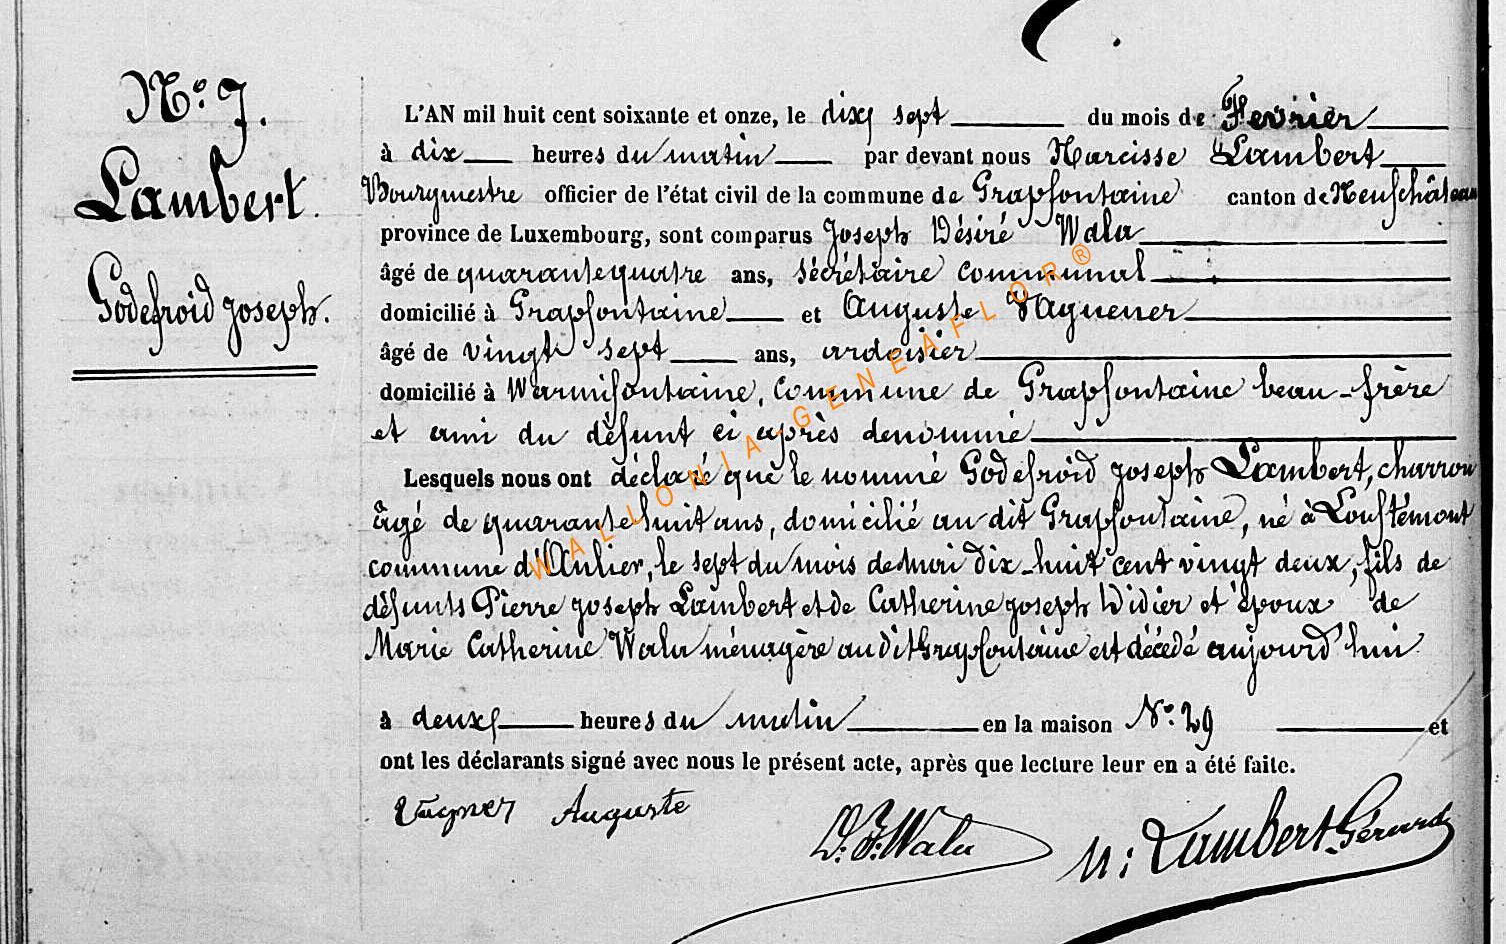 N.º 7.
Lambert.
Godefroid Joseph.
L'AN mil huit cent soixante et onze, le dix sept du mois de Fevrier
à dix heures du matin par devant nous Narcisse Lambert
Bourgmestre officier de l'état civil de la commune de Grapfontaine canton de Neufchâteau
province de Luxembourg, sont comparus Joseph Désiré Wala
âgé de quarante quatre ans, sécrétaire communal
domicilié à Grapfontaine et Auguste Vaguener
âgé de vingt sept ans, ardoisier
domicilié à Warmifontaine, commune de Grapfontaine beau-frère
et ami du défunt ci après denommé
Lesquels nous ont déclaré que le nommé Godefroid Joseph Lambert, charron
âgé de quarante huit ans, domicilié au dit Grapfontaine, né à Louftémont
commune d'Anlier, le sept du mois de mai dix-huit cent vingt deux, fils de
défunts Pierre Joseph Lambert et de Catherine Joseph Didier et époux de
Marie Catherine Wala ménagère au dit Grapfontaine est décédé aujourd'hui
à deux heures du matin en la maison N.º 29 et
ont les déclarants signé avec nous le présent acte, après que lecture leur en a été faite.
Vagner Auguste D. J. Wala N: Lambert-Gérard
WALLONIA-GENEAFLOR®